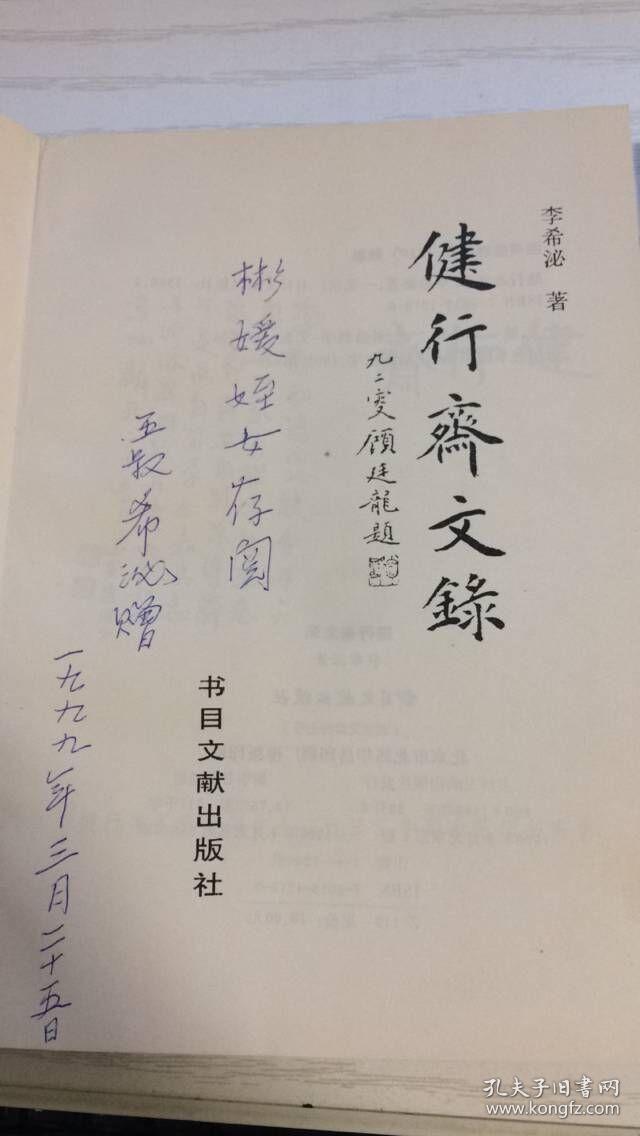 李希泌 著
健行斋文錄
九二叟顾廷龍題
书目文献出版社
彬媛姪女存阅
五叔希泌赠
一九九九年三月二十五日
孔夫子旧书网
www.kongfz.com